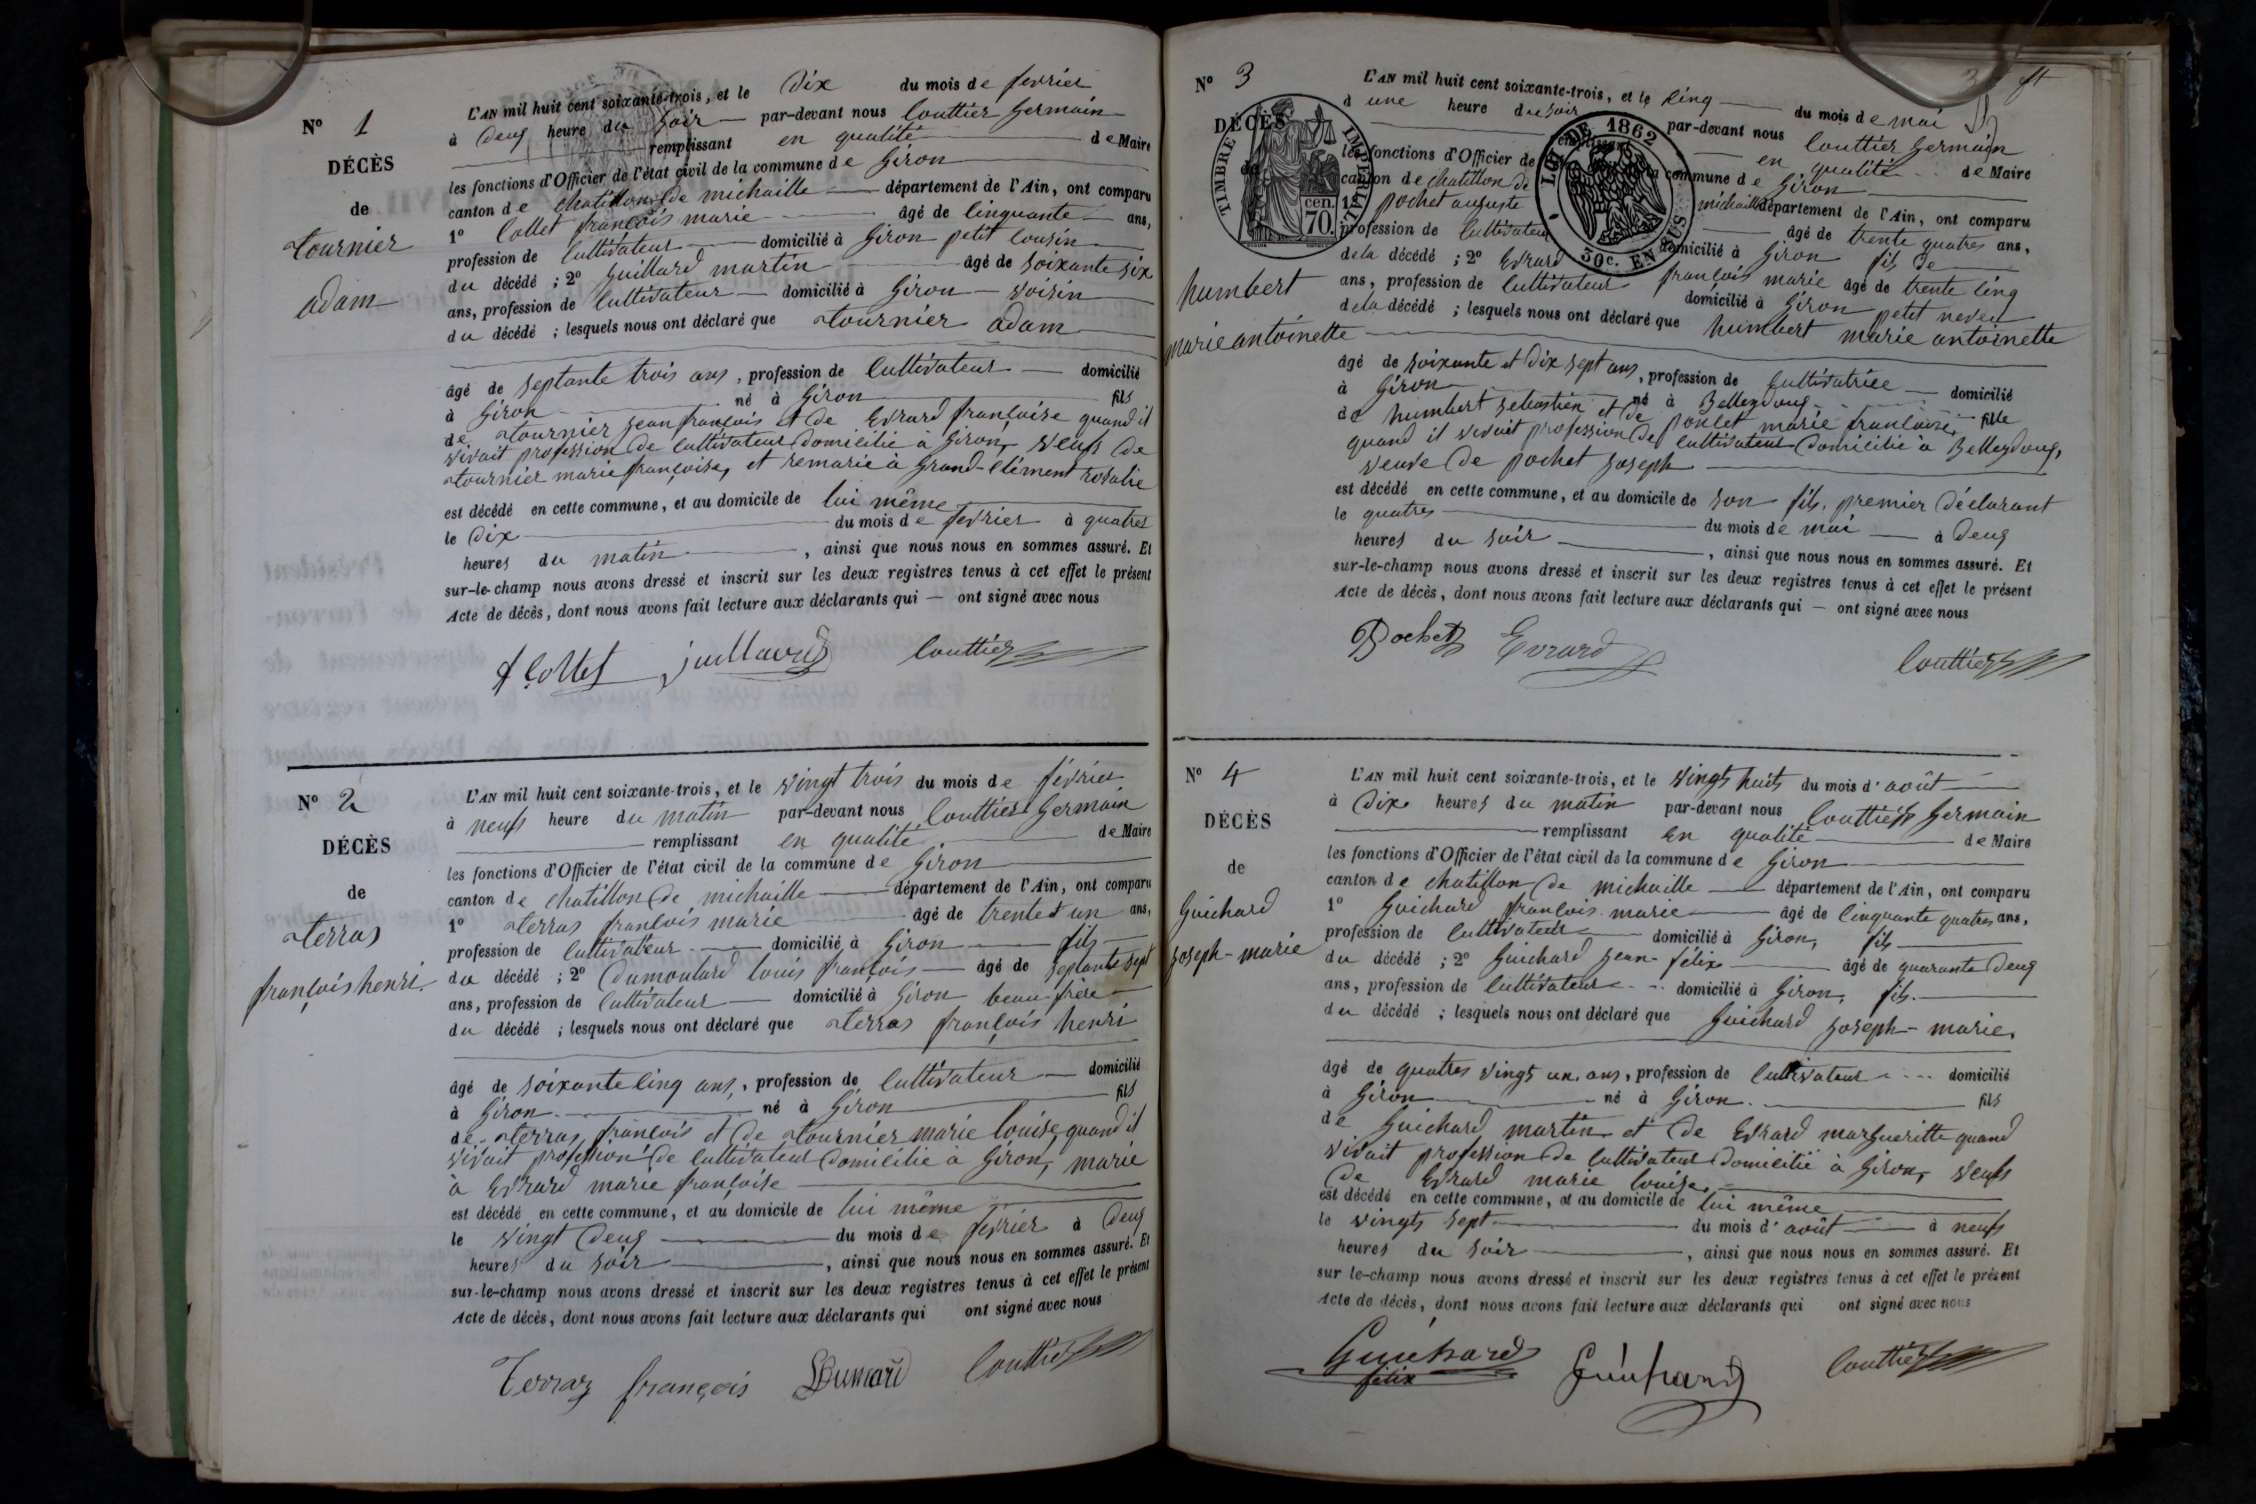 N° 1
DÉCÈS
de
tournier
adam
L'AN mil huit cent soixante-trois, et le Dix du mois de fevrier
à Deux heure du soir par-devant nous Couttier Germain
remplissant en qualité de Maire
les fonctions d'Officier de l'état civil de la commune de Giron
canton de chatillon de michaille département de l'Ain, ont comparu
1° Collet françois marie âgé de cinquante ans,
profession de Cultivateur domicilié à Giron petit cousin
du décédé ; 2° Guillard martin âgé de soixante six
ans, profession de Cultivateur domicilié à Giron voisin
du décédé ; lesquels nous ont déclaré que tournier adam
âgé de septante trois ans, profession de Cultivateur domicilié
à Giron né à Giron fils
de tournier jean françois et de Evrard françoise quand il
vivait profession de cultivateur domicilié à Giron, veuf de
tournier marie françoise, et remarié à Grand-Clément rosalie
est décédé en cette commune, et au domicile de lui même
le Dix du mois de fevrier à quatres
heures du matin, ainsi que nous nous en sommes assuré. Et
sur-le-champ nous avons dressé et inscrit sur les deux registres tenus à cet effet le présent
Acte de décès, dont nous avons fait lecture aux déclarants qui — ont signé avec nous
Collet Couttier
N° 2
DÉCÈS
de
terras
françois henri
L'AN mil huit cent soixante-trois, et le vingt trois du mois de février
à neuf heure du matin par-devant nous Couttier Germain
remplissant en qualité de Maire
les fonctions d'Officier de l'état civil de la commune de Giron
canton de chatillon de michaille département de l'Ain, ont comparu
1° terras françois marie âgé de trente et un ans,
profession de Cultivateur domicilié à Giron fils
du décédé ; 2° Dumoulard louis françois âgé de septante sept
ans, profession de Cultivateur domicilié à Giron beau frère
du décédé ; lesquels nous ont déclaré que terras françois henri
âgé de soixante cinq ans, profession de Cultivateur domicilié
à Giron né à Giron fils
de terras françois et de tournier marie louise quand il
vivait profession de Cultivateur domicilié a Giron, marié
à Evrard marie françoise
est décédé en cette commune, et au domicile de lui même
le vingt Deux du mois de fevrier à Deux
heures du soir, ainsi que nous nous en sommes assuré. Et
sur-le-champ nous avons dressé et inscrit sur les deux registres tenus à cet effet le présent
Acte de décès, dont nous avons fait lecture aux déclarants qui ont signé avec nous
Terraz françois Couttier
N° 3
DÉCÈS
de
humbert
marie antoinette
TIMBRE IMPÉRIAL
cen. 70.
LOI DE 1862
50c. EN SUS
L'AN mil huit cent soixante-trois, et le cinq du mois de mai
à une heure du soir par-devant nous Couttier Germain
remplissant en qualité de Maire
les fonctions d'Officier de commune de Giron
canton de chatillon de michaille département de l'Ain, ont comparu
1° pochet auguste âgé de trente quatres ans,
profession de Cultivateur domicilié à Giron fils de
dela décédé ; 2° Evrard françois marie âgé de trente cinq
ans, profession de Cultivateur domicilié à Giron petit neveu
dela décédé ; lesquels nous ont déclaré que humbert marie antoinette
âgé de soixante et dix sept ans, profession de Cultivatrice domicilié
à Giron né à Belleydoux fille
de humbert sebastien et de poncet marie françoise
quand il vivait profession de cultivateur domicilié à Belleydoux,
veuve de pochet joseph
est décédé en cette commune, et au domicile de son fils, premier déclarant
le quatres du mois de mai à Deux
heures du soir, ainsi que nous nous en sommes assuré. Et
sur-le-champ nous avons dressé et inscrit sur les deux registres tenus à cet effet le présent
Acte de décès, dont nous avons fait lecture aux déclarants qui — ont signé avec nous
Pochet Evrard Couttier
N° 4
DÉCÈS
de
Guichard
joseph-marie
L'AN mil huit cent soixante-trois, et le vingt huits du mois d'août
à Dix heures du matin par-devant nous Couttier Germain
remplissant en qualité de Maire
les fonctions d'Officier de l'état civil de la commune de Giron
canton de chatillon de michaille département de l'Ain, ont comparu
1° Guichard françois marie âgé de cinquante quatres ans,
profession de Cultivateur domicilié à Giron, fils
du décédé ; 2° Guichard jean-félix âgé de quarante Deux
ans, profession de Cultivateur domicilié à Giron, fils
du décédé ; lesquels nous ont déclaré que Guichard joseph-marie.
âgé de quatres vingt un ans, profession de Cultivateur domicilié
à Giron né à Giron fils
de Guichard martin et de Evrard margueritte quand
vivait profession de Cultivateur domicilié à Giron, veuf
de Evrard marie louise.
est décédé en cette commune, et au domicile de lui même
le vingt sept du mois d'août à neuf
heures du soir, ainsi que nous nous en sommes assuré. Et
sur le-champ nous avons dressé et inscrit sur les deux registres tenus à cet effet le présent
Acte de décès, dont nous avons fait lecture aux déclarants qui ont signé avec nous
Guichard félix Guichard Couttier